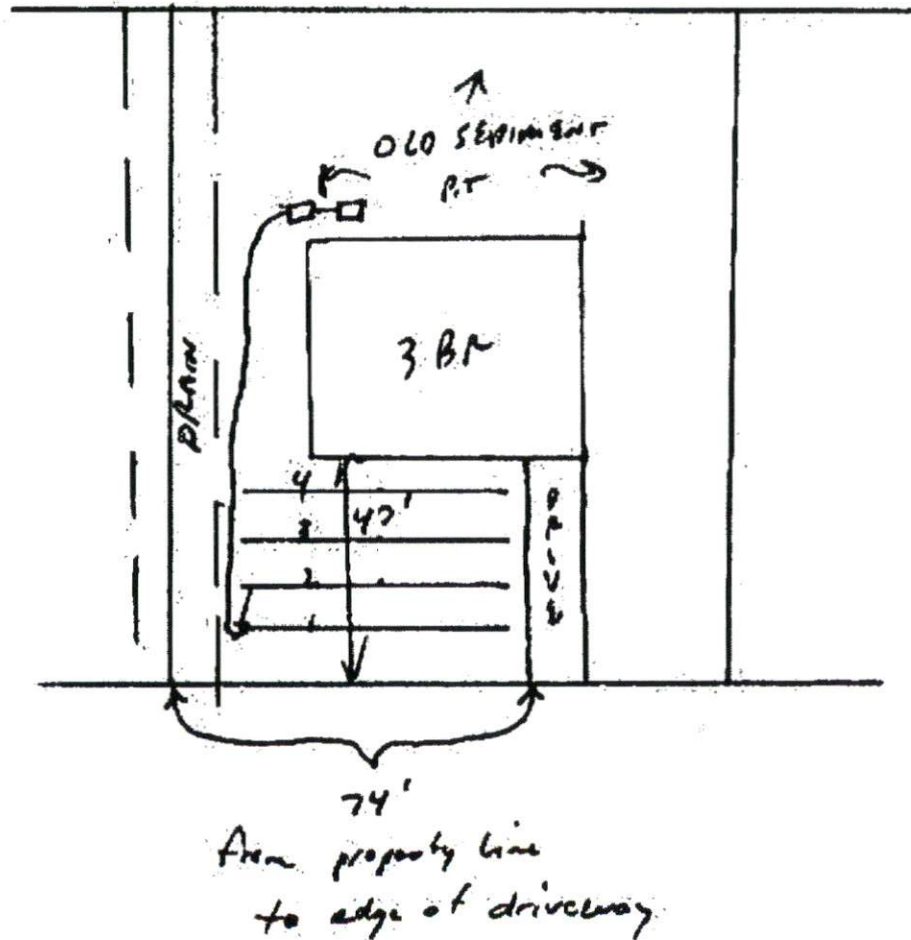 OLD SEDIMENT
PIT
3 BR
DRAIN
4
3
2
1
DRIVE
74'
From property line
to edge of driveway